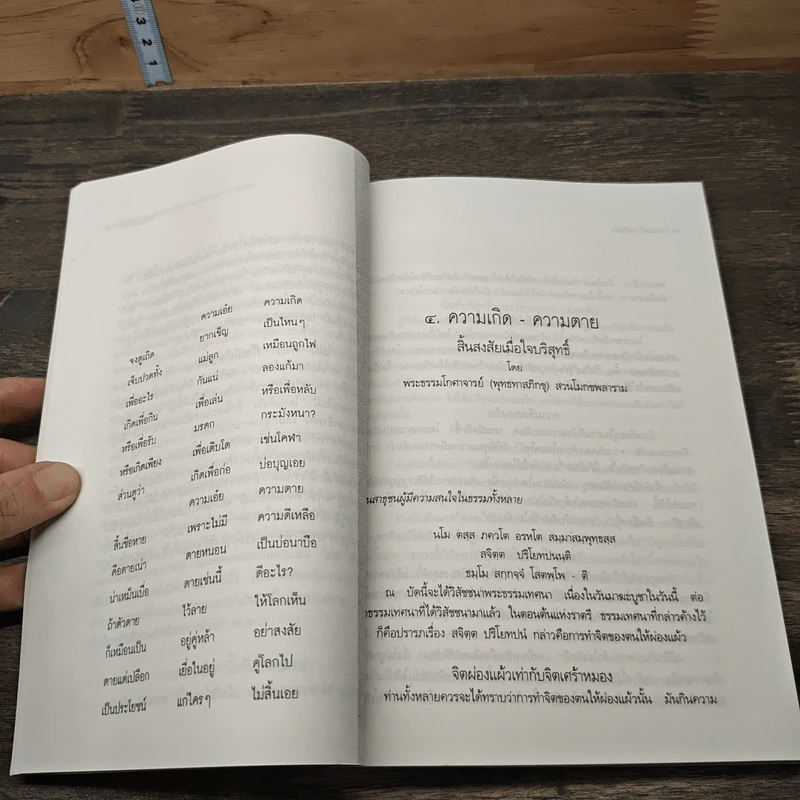 3
2
1
ความเอ๋ย ความเกิด
จงดูเถิด ยากเข็ญ เป็นไหนๆ
เจ็บปวดทั้ง แม่ลูก เหมือนถูกไฟ
เพื่ออะไร กันแน่ ลองแก้มา
เกิดเพื่อกิน เพื่อเล่น หรือเพื่อหลับ
หรือเพื่อรับ มรดก กระมังหนา?
หรือเกิดเพียง เพื่อเติบโต เช่นโคฬา
ส่วนดูว่า เกิดเพื่อก่อ บ่อบุญเอย
ความเอ๋ย ความตาย
สิ้นชื่อหาย เพราะไม่มี ความดีเหลือ
คือตายเน่า ตายหนอน เป็นบ่อนาบือ
น่าเหม็นเบื่อ ตายเช่นนี้ ดีอะไร?
ถ้าตัวตาย ไว้ลาย ให้โลกเห็น
ก็เหมือนเป็น อยู่คู่หล้า อย่าสงสัย
ตายแต่เปลือก เยื่อในอยู่ คู่โลกไป
เป็นประโยชน์ แก่ใครๆ ไม่สิ้นเอย
๔. ความเกิด - ความตาย
สิ้นสงสัยเมื่อใจบริสุทธิ์
โดย
พระธรรมโกศาจารย์ (พุทธทาสภิกขุ) สวนโมกขพลาราม
นสาธุชนผู้มีความสนใจในธรรมทั้งหลาย
นโม ตสฺส ภควโต อรหโต สมฺมาสมฺพุทธสฺส
สจิตฺต ปริโยทปนนฺติ
ธมฺโม สกฺกจฺจํ โสตพฺโพ - ติ
ณ บัดนี้จะได้วิสัชชนาพระธรรมเทศนา เนื่องในวันมาฆะบูชาในวันนี้ ต่อ
ธรรมเทศนาที่ได้วิสัชชนามาแล้ว ในตอนต้นแห่งราตรี ธรรมเทศนาที่กล่าวค้างไว้
ก็คือปรารภเรื่อง สจิตฺต ปริโยทปนํ กล่าวคือการทำจิตของตนให้ผ่องแผ้ว
จิตผ่องแผ้วเท่ากับจิตเศร้าหมอง
ท่านทั้งหลายควรจะได้ทราบว่าการทำจิตของตนให้ผ่องแผ้วนั้น มันกินความ